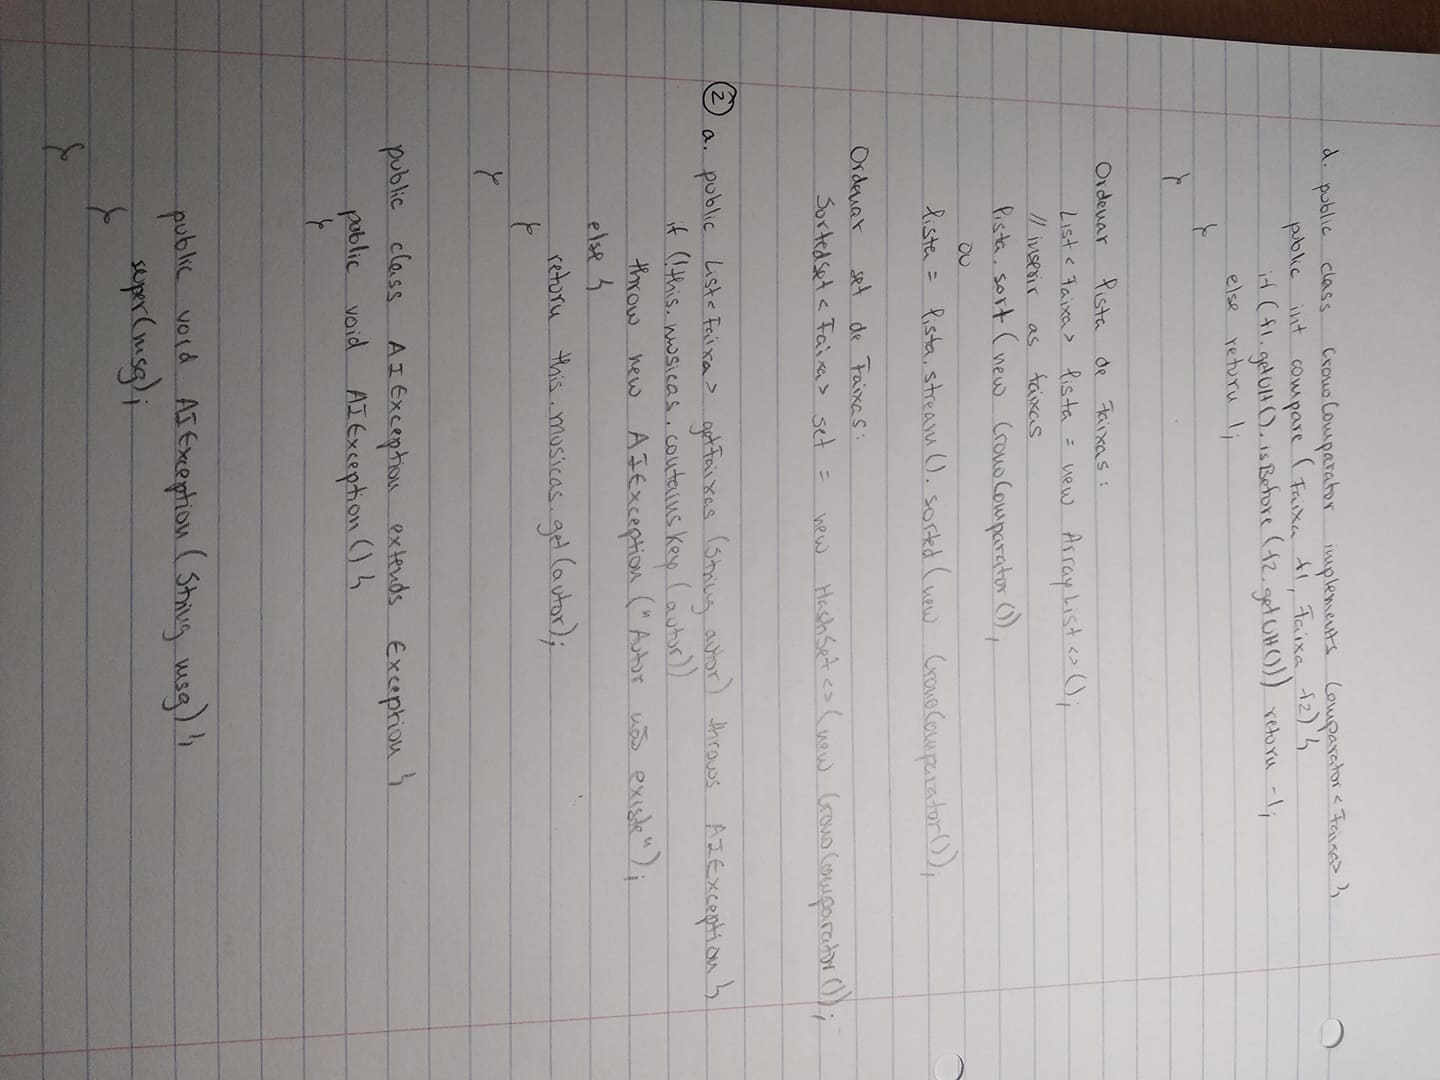 d. public class CronoComparator implements Comparator<Faixa> {
public int compare (Faixa f1, Faixa f2) {
if (f1.getUlt().isBefore(f2.getUlt())) return -1;
else return 1;
}
}
Ordenar lista de Faixas:
List<Faixa> lista = new ArrayList<>();
// inserir as faixas
lista.sort(new CronoComparator()),
ou
lista = lista.stream().sorted(new CronoComparator());
Ordenar set de Faixas:
SortedSet<Faixa> set = new HashSet<>(new CronoComparator());
② a. public List<Faixa> getFaixas (String autor) throws AIException {
if (!this.musicas.containsKey(autor))
throw new AIException("Autor não existe");
else {
return this.musicas.get(autor);
}
}
public class AIException extends Exception {
public void AIException() {
}
public void AIException(String msg) {
super(msg);
}
}